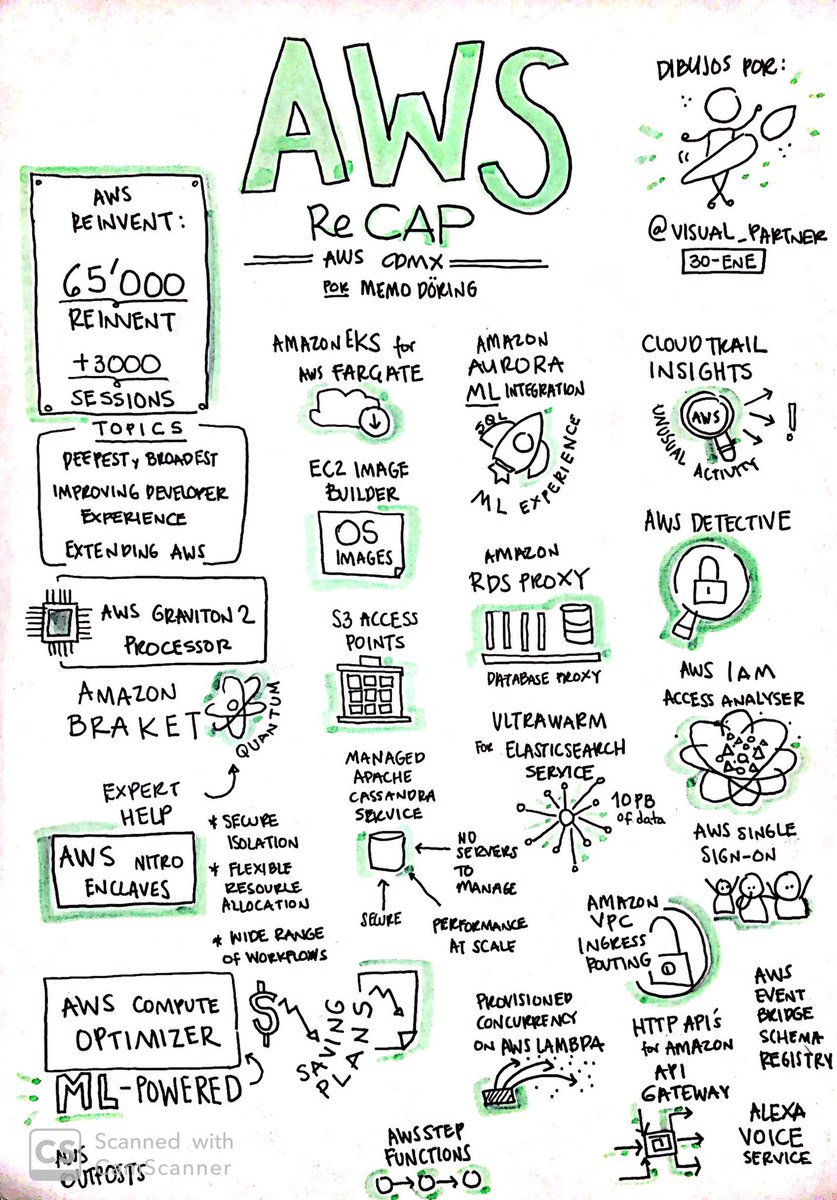 AWS
ReCAP
AWS CDMX
POR MEMO DÖRING
DIBUJOS POR:
@VISUAL_PARTNER
30-ENE
AWS
REINVENT:
65'000
REINVENT
+3000
SESSIONS
TOPICS
DEEPEST y BROADEST
IMPROVING DEVELOPER
EXPERIENCE
EXTENDING AWS
AWS GRAVITON 2
PROCESSOR
AMAZON
BRAKET
QUANTUM
EXPERT
HELP
AWS NITRO
ENCLAVES
* SECURE
ISOLATION
* FLEXIBLE
RESOURCE
ALLOCATION
* WIDE RANGE
OF WORKFLOWS
AWS COMPUTE
OPTIMIZER
ML-POWERED
$
SAVING
PLANS
AWS
OUTPOSTS
AMAZON EKS for
AWS FARGATE
EC2 IMAGE
BUILDER
OS
IMAGES
S3 ACCESS
POINTS
MANAGED
APACHE
CASSANDRA
SERVICE
NO
SERVERS
TO
MANAGE
SECURE
PERFORMANCE
AT SCALE
AWS STEP
FUNCTIONS
AMAZON
AURORA
ML INTEGRATION
SQL
ML EXPERIENCE
AMAZON
RDS PROXY
DATABASE PROXY
ULTRAWARM
for ELASTICSEARCH
SERVICE
10 PB
of data
PROVISIONED
CONCURRENCY
ON AWS LAMBDA
CLOUD TRAIL
INSIGHTS
AWS
!
UNUSUAL ACTIVITY
AWS DETECTIVE
AWS IAM
ACCESS ANALYSER
AWS SINGLE
SIGN-ON
AMAZON
VPC
INGRESS
ROUTING
HTTP API's
for AMAZON
API
GATEWAY
AWS
EVENT
BRIDGE
SCHEMA
REGISTRY
ALEXA
VOICE
SERVICE
CS
Scanned with
CamScanner